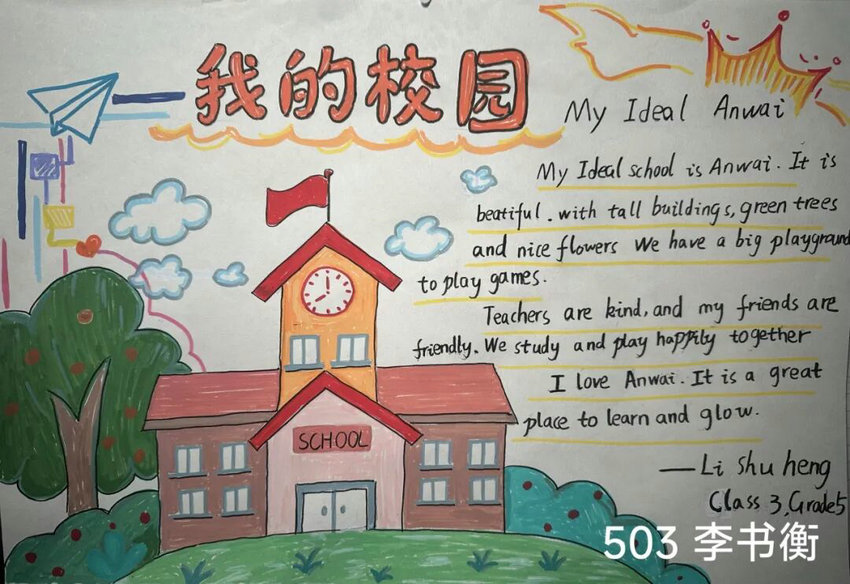 我的校园
My Ideal Anwai
My Ideal school is Anwai. It is
beatiful. with tall buildings, green trees
and nice flowers We have a big playground
to play games.
Teachers are kind, and my friends are
friendly. We study and play happily together
I love Anwai. It is a great
place to learn and glow.
—Li shu heng
Class 3, Grade5
SCHOOL
503 李书衡